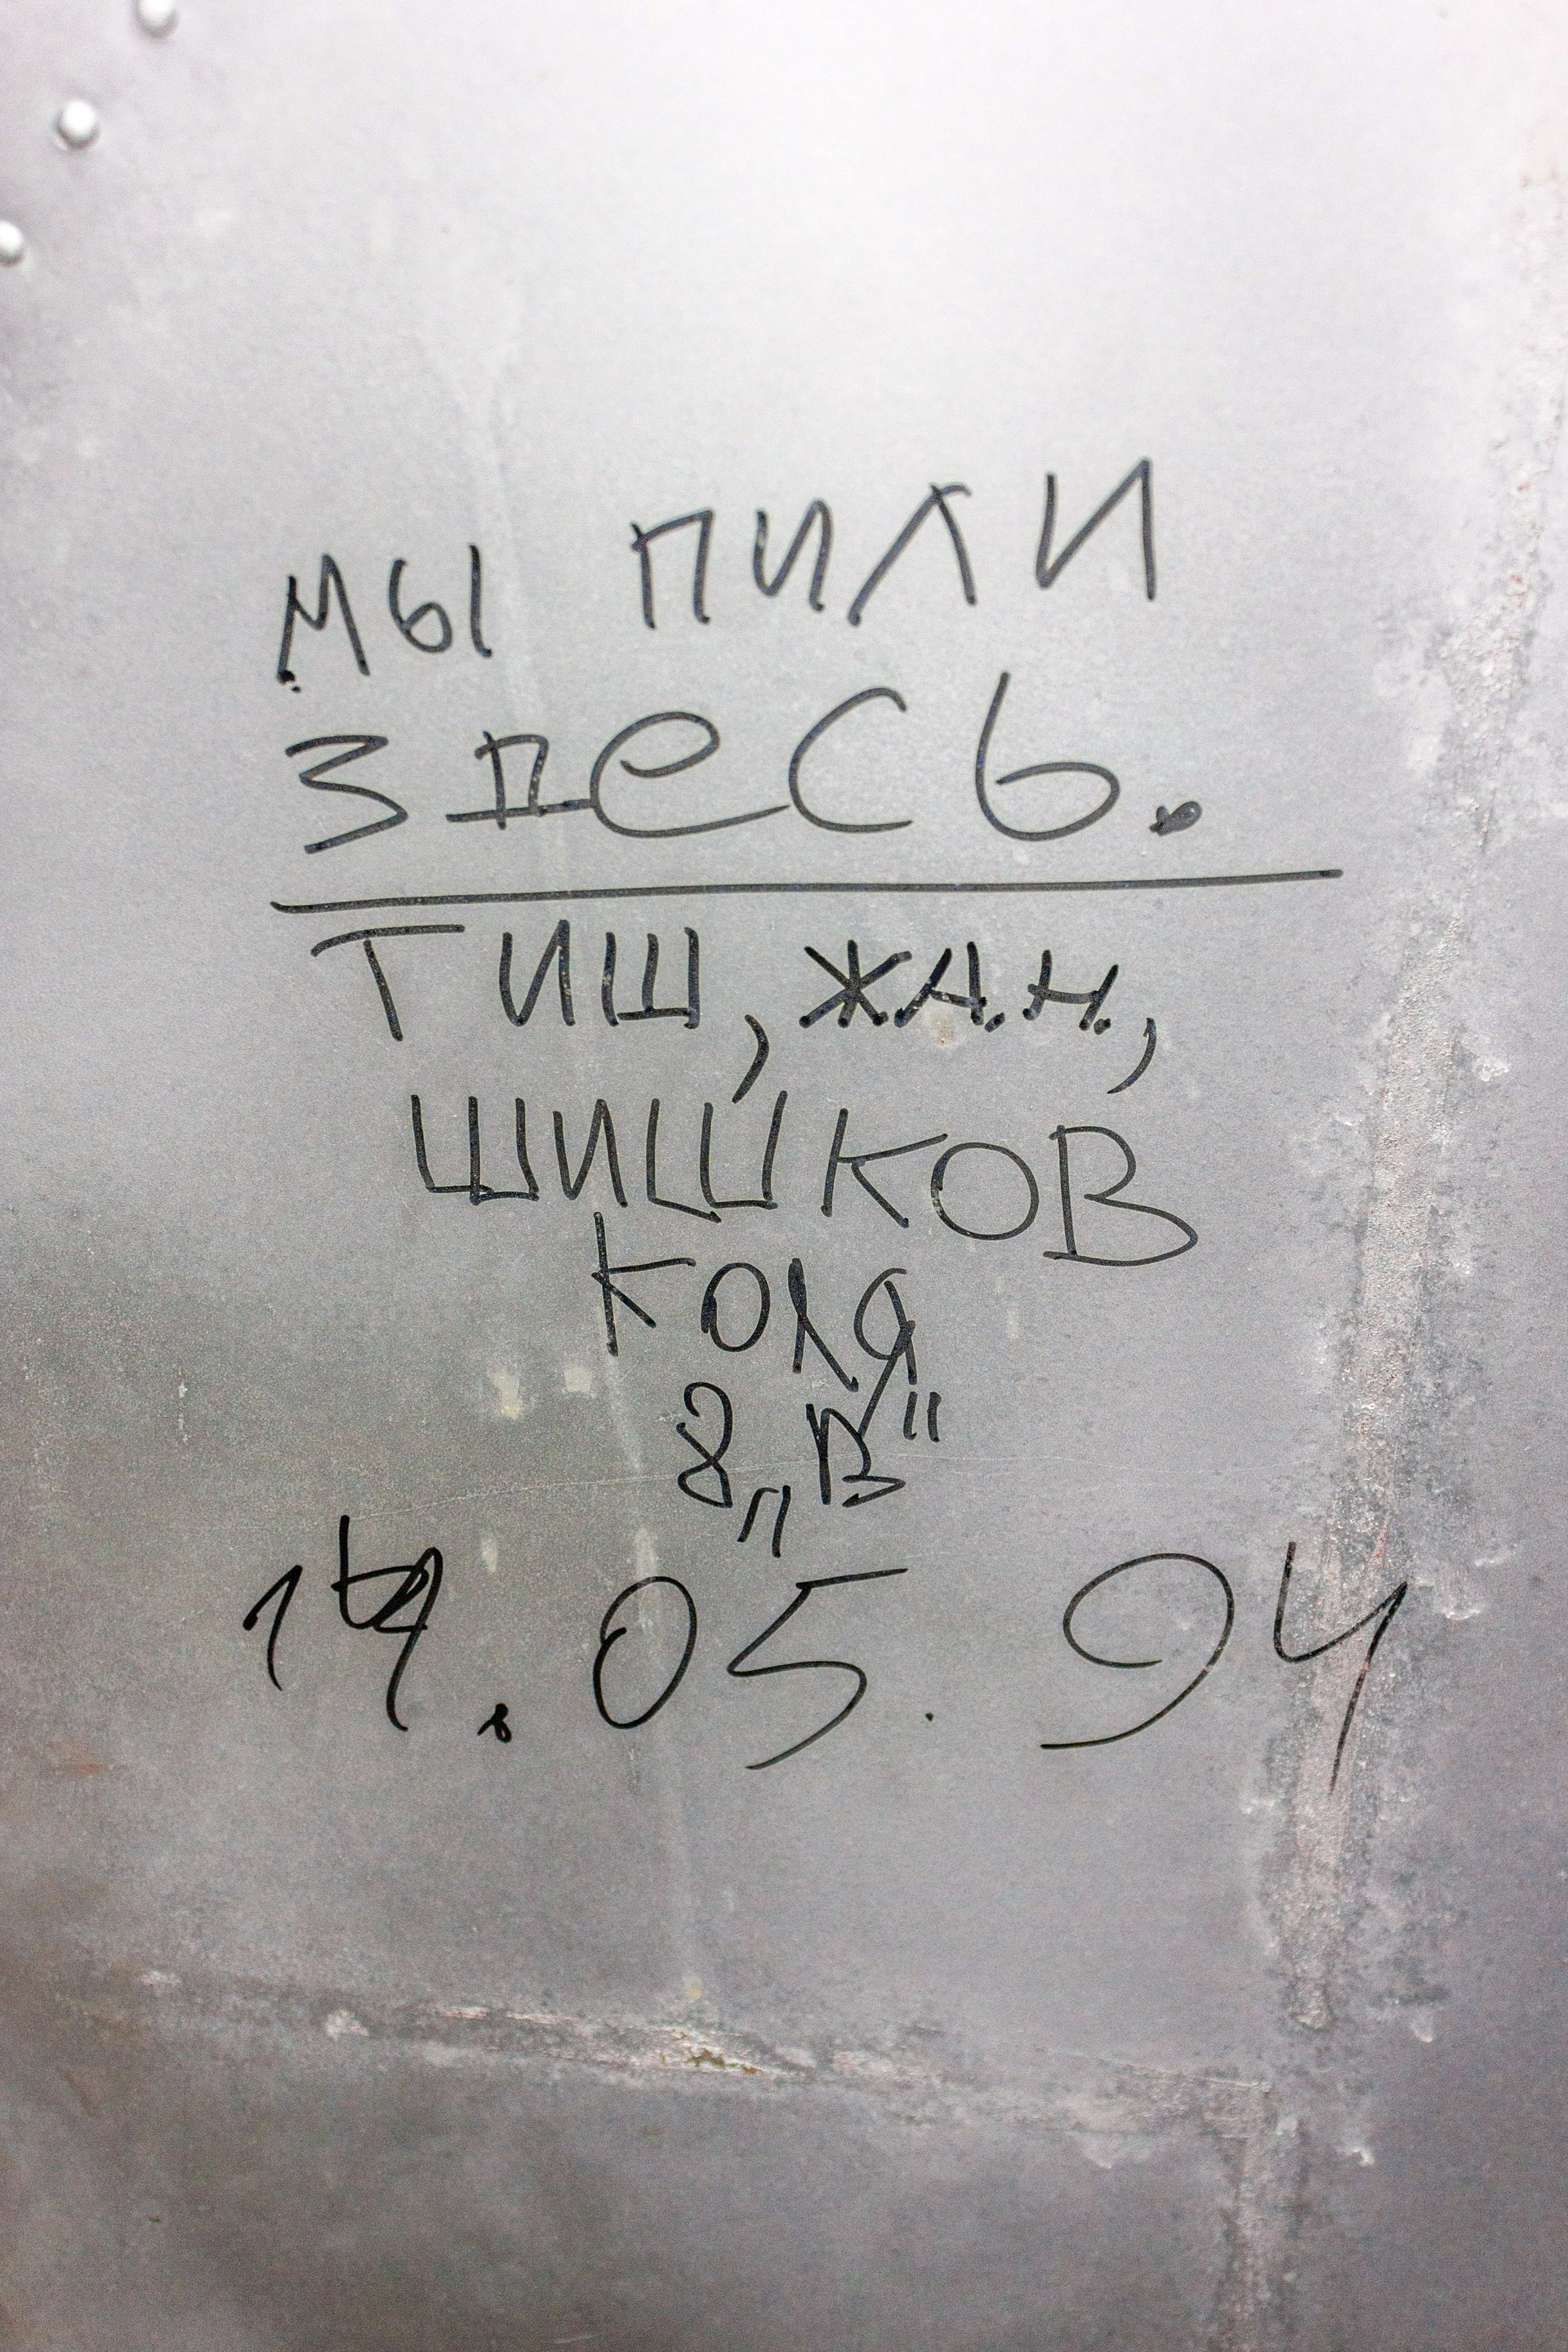 мы пили
здесь.
Тиш, Ж.А.Н.,
Шишков
Коля
8 „В"
14.05.94